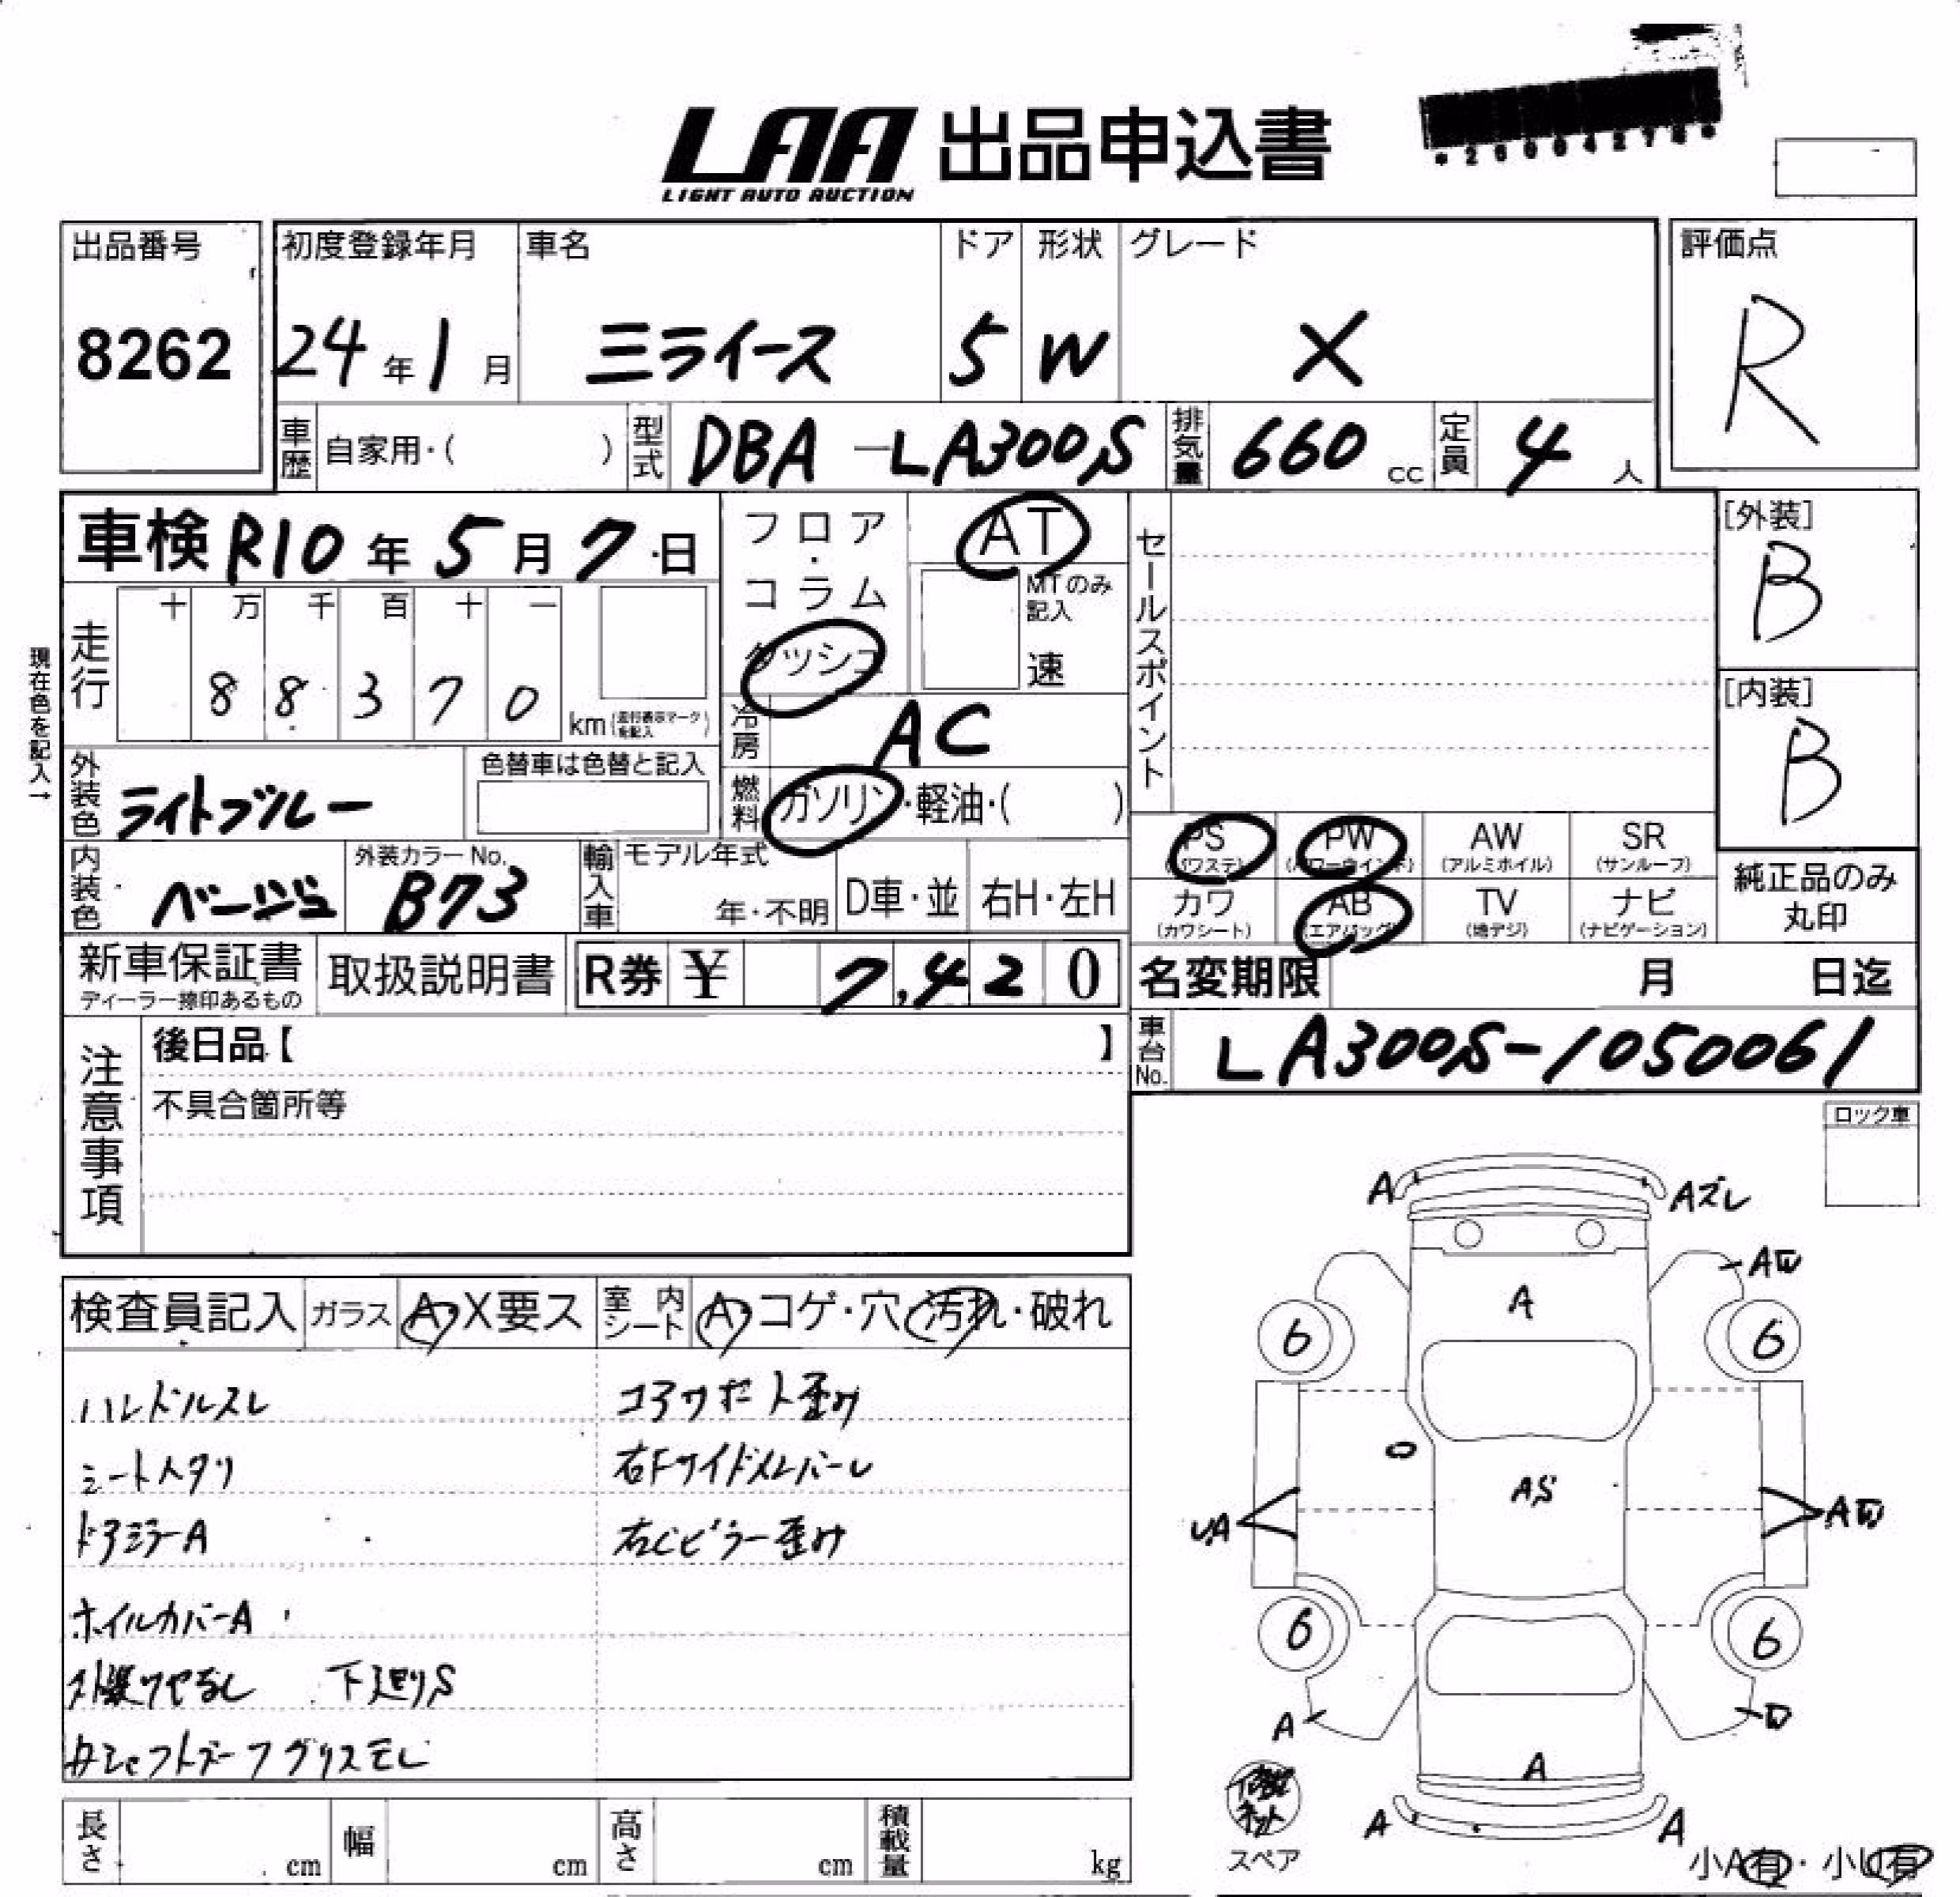 LAA 出品申込書
LIGHT AUTO AUCTION
出品番号
8262
初度登録年月
24年1月
車名
ミライース
ドア
5
形状
W
グレード
X
評価点
R
車歴 自家用・( )
型式 DBA-LA300S
排気量 660 cc
定員 4 人
車検 R10年5月7日
フロア・コラム
ダッシュ
AT
MTのみ記入
速
セールスポイント
[外装]
B
[内装]
B
現在色を記入→
走行 十 万 千 百 十 一
88370 km(走行表示マークを記入)
冷房 AC
外装色 ライトブルー
色替車は色替と記入
燃料 ガソリン・軽油・( )
内装色 ベージュ
外装カラーNo.
B73
輸入車 モデル年式
年・不明
D車・並
右H・左H
PS (パワステ)
PW (パワーウインド)
AW (アルミホイル)
SR (サンルーフ)
カワ (カワシート)
AB (エアバッグ)
TV (地デジ)
ナビ (ナビゲーション)
純正品のみ丸印
新車保証書
ディーラー捺印あるもの
取扱説明書
R券 ¥ 7,420
名変期限 月 日迄
車台No. LA300S-1050061
注意事項
後日品【 】
不具合箇所等
ロック車
検査員記入 ガラス A・X要ス 室内シート A・コゲ・穴・汚れ・破れ
ハンドルスレ
シートヘタリ
ドアミラーA
ホイルカバーA
外装ツヤなし 下廻りS
シャフトブーツグリスモレ
コアサポート歪み
右Fサイドメンバーレ
右Cピラー歪み
A
Aズレ
A凹
A
6
6
AS
UA
A凹
6
6
A
A
A
A
スペア
小A有・小U有
長さ cm
幅 cm
高さ cm
積載量 kg